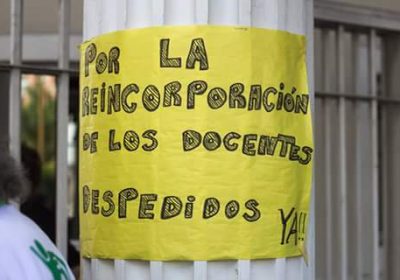 POR LA
REINCORPORACIÓN
DE LOS DOCENTES
DESPEDIDOS YA!!